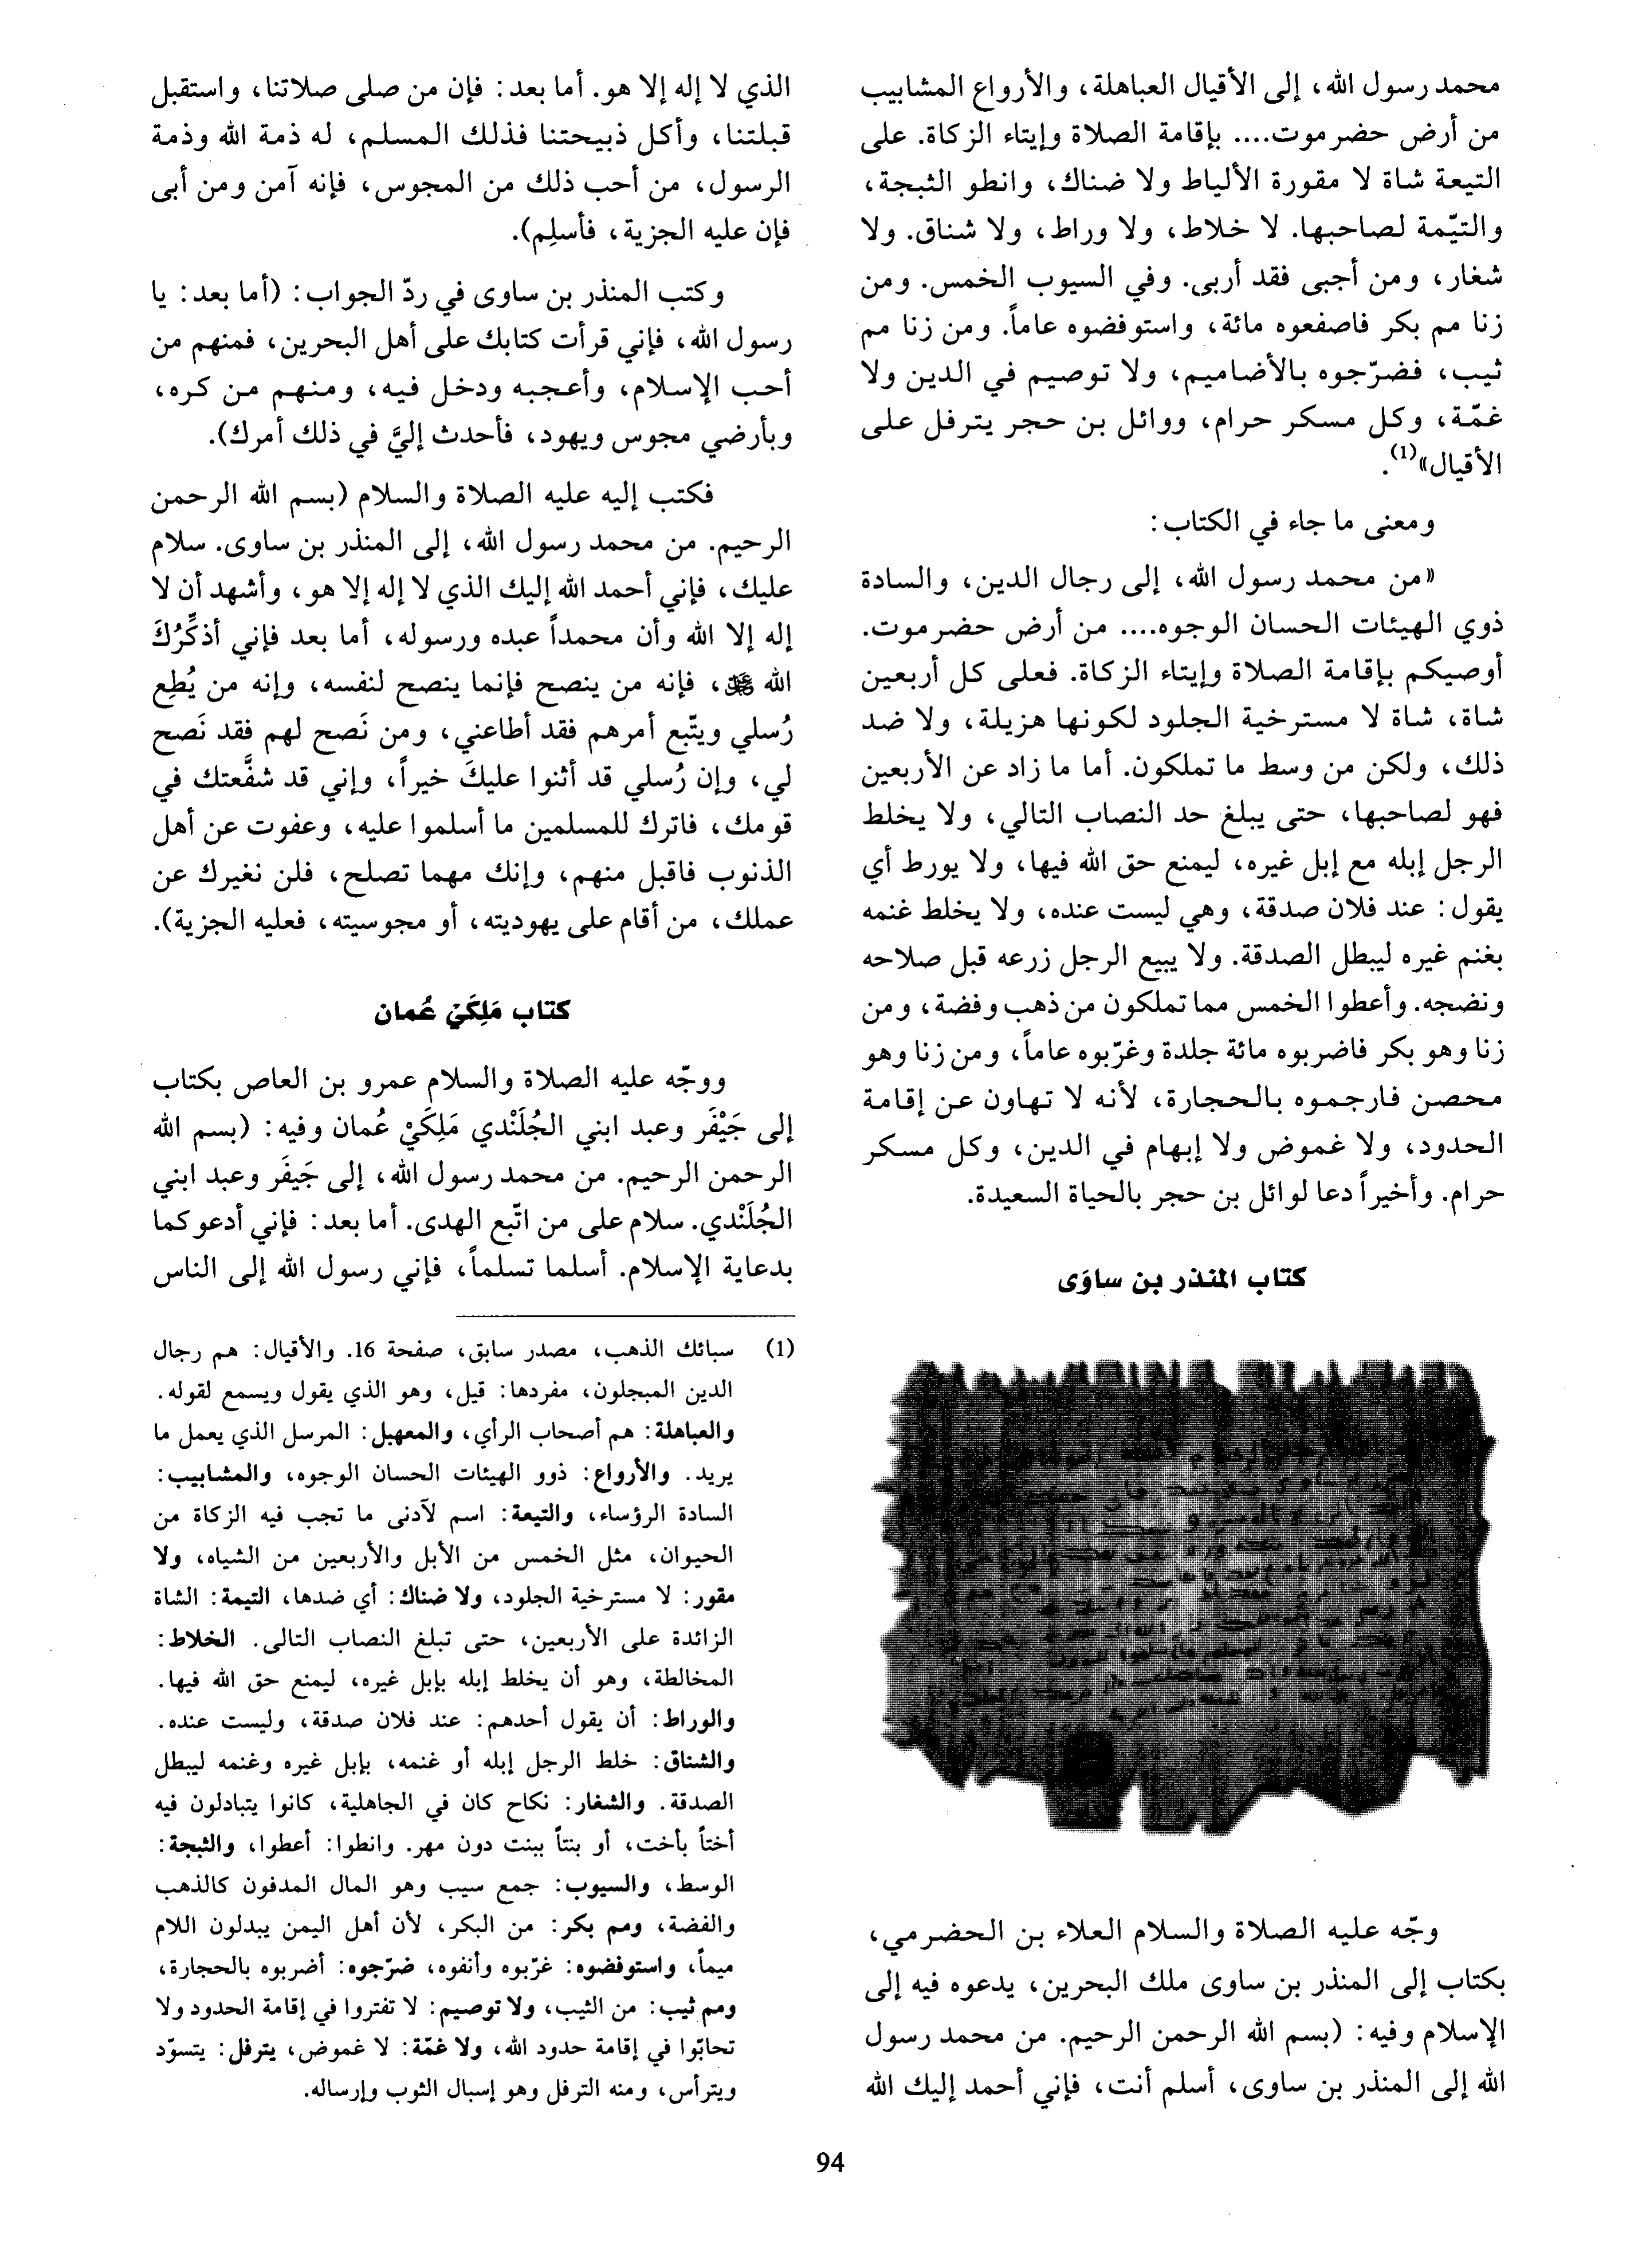 محمد رسول الله، إلى الأقيال العباهلة، والأرواع المشابيب
من أرض حضرموت.... بإقامة الصلاة وإيتاء الزكاة. على
التيعة شاة لا مقورة الألياط ولا ضناك، وانطو الثبجة،
والتيّمة لصاحبها. لا خلاط، ولا وراط، ولا شناق. ولا
شغار، ومن أجبى فقد أربى. وفي السيوب الخمس. ومن
زنا مم بكر فاصفعوه مائة، واستوفضوه عاماً. ومن زنا مم
ثيب، فضرّجوه بالأضاميم، ولا توصيم في الدين ولا
غمّة، وكل مسكر حرام، ووائل بن حجر يترفل على
الأقيال»(1).
ومعنى ما جاء في الكتاب:
«من محمد رسول الله، إلى رجال الدين، والسادة
ذوي الهيئات الحسان الوجوه.... من أرض حضرموت.
أوصيكم بإقامة الصلاة وإيتاء الزكاة. فعلى كل أربعين
شاة، شاة لا مسترخية الجلود لكونها هزيلة، ولا ضد
ذلك، ولكن من وسط ما تملكون. أما ما زاد عن الأربعين
فهو لصاحبها، حتى يبلغ حد النصاب التالي، ولا يخلط
الرجل إبله مع إبل غيره، ليمنع حق الله فيها، ولا يورط أي
يقول: عند فلان صدقة، وهي ليست عنده، ولا يخلط غنمه
بغنم غيره ليبطل الصدقة. ولا يبيع الرجل زرعه قبل صلاحه
ونضجه. وأعطوا الخمس مما تملكون من ذهب وفضة، ومن
زنا وهو بكر فاضربوه مائة جلدة وغرّبوه عاماً، ومن زنا وهو
محصن فارجموه بالحجارة، لأنه لا تهاون عن إقامة
الحدود، ولا غموض ولا إبهام في الدين، وكل مسكر
حرام. وأخيراً دعا لوائل بن حجر بالحياة السعيدة.
كتاب المنذر بن ساوَى
وجّه عليه الصلاة والسلام العلاء بن الحضرمي،
بكتاب إلى المنذر بن ساوى ملك البحرين، يدعوه فيه إلى
الإسلام وفيه: (بسم الله الرحمن الرحيم. من محمد رسول
الله إلى المنذر بن ساوى، أسلم أنت، فإني أحمد إليك الله
الذي لا إله إلا هو. أما بعد: فإن من صلى صلاتنا، واستقبل
قبلتنا، وأكل ذبيحتنا فذلك المسلم، له ذمة الله وذمة
الرسول، من أحب ذلك من المجوس، فإنه آمن ومن أبى
فإن عليه الجزية، فأسلِم).
وكتب المنذر بن ساوى في ردّ الجواب: (أما بعد: يا
رسول الله، فإني قرأت كتابك على أهل البحرين، فمنهم من
أحب الإسلام، وأعجبه ودخل فيه، ومنهم من كره،
وبأرضي مجوس ويهود، فأحدث إليَّ في ذلك أمرك).
فكتب إليه عليه الصلاة والسلام (بسم الله الرحمن
الرحيم. من محمد رسول الله، إلى المنذر بن ساوى. سلام
عليك، فإني أحمد الله إليك الذي لا إله إلا هو، وأشهد أن لا
إله إلا الله وأن محمداً عبده ورسوله، أما بعد فإني أذكِّرُكَ
الله ﷺ، فإنه من ينصح فإنما ينصح لنفسه، وإنه من يُطِع
رُسلي ويتّبع أمرهم فقد أطاعني، ومن نَصح لهم فقد نَصح
لي، وإن رُسلي قد أثنوا عليكَ خيراً، وإني قد شفَّعتك في
قومك، فاترك للمسلمين ما أسلموا عليه، وعفوت عن أهل
الذنوب فاقبل منهم، وإنك مهما تصلح، فلن نغيرك عن
عملك، من أقام على يهوديته، أو مجوسيته، فعليه الجزية).
كتاب مَلِكَيْ عُمان
ووجّه عليه الصلاة والسلام عمرو بن العاص بكتاب
إلى جَيْفَر وعبد ابني الجُلَنْدي مَلِكَيْ عُمان وفيه: (بسم الله
الرحمن الرحيم. من محمد رسول الله، إلى جَيفَر وعبد ابني
الجُلَنْدي. سلام على من اتّبع الهدى. أما بعد: فإني أدعوكما
بدعاية الإسلام. أسلما تسلماً، فإني رسول الله إلى الناس
(1) سبائك الذهب، مصدر سابق، صفحة 16. والأقيال: هم رجال
الدين المبجلون، مفردها: قيل، وهو الذي يقول ويسمع لقوله.
والعباهلة: هم أصحاب الرأي، والمعهبل: المرسل الذي يعمل ما
يريد. والأرواع: ذوو الهيئات الحسان الوجوه، والمشابيب:
السادة الرؤساء، والتيعة: اسم لآدنى ما تجب فيه الزكاة من
الحيوان، مثل الخمس من الأبل والأربعين من الشياه، ولا
مقور: لا مسترخية الجلود، ولا ضناك: أي ضدها، التيمة: الشاة
الزائدة على الأربعين، حتى تبلغ النصاب التالى. الخلاط:
المخالطة، وهو أن يخلط إبله بإبل غيره، ليمنع حق الله فيها.
والوراط: أن يقول أحدهم: عند فلان صدقة، وليست عنده.
والشناق: خلط الرجل إبله أو غنمه، بإبل غيره وغنمه ليبطل
الصدقة. والشغار: نكاح كان في الجاهلية، كانوا يتبادلون فيه
أختاً بأخت، أو بنتاً ببنت دون مهر. وانطوا: أعطوا، والثبجة:
الوسط، والسيوب: جمع سيب وهو المال المدفون كالذهب
والفضة، ومم بكر: من البكر، لأن أهل اليمن يبدلون اللام
ميماً، واستوفضوه: غرّبوه وأنفوه، ضرّجوه: أضربوه بالحجارة،
ومم ثيب: من الثيب، ولا توصيم: لا تفتروا في إقامة الحدود ولا
تحابّوا في إقامة حدود الله، ولا غمّة: لا غموض، يترفل: يتسوّد
ويترأس، ومنه الترفل وهو إسبال الثوب وإرساله.
94